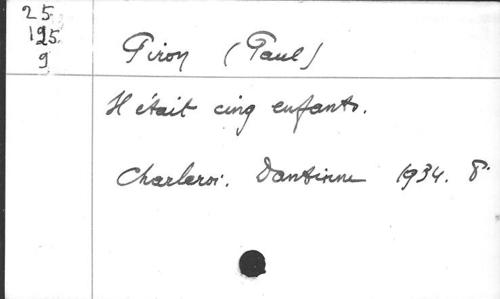 25
195
9
Piron (Paul)
Il était cinq enfants.
Charleroi. Dantinne 1934. 8°.